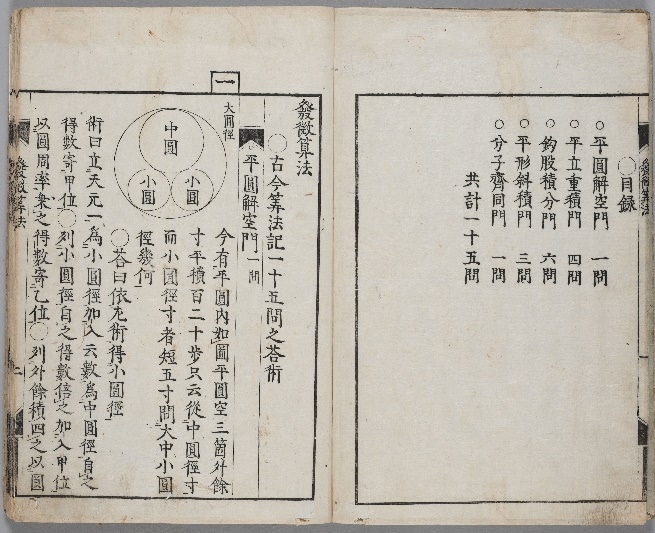 ○目録
○平圓解空門 一問
○平立重積門 四問
○鈎股積分門 六問
○平形斜積門 三問
○分子齊同門 一問
共計一十五問
發微算法
○古今筭法記一十五問之荅術
平圓解空門 一問
今有平圓内如圖平圓空三箇外餘
寸平積百二十歩只云從中圓徑寸
而小圓徑寸者短五寸問大中小圓
徑幾何
○荅曰依左術得小圓徑
術曰立天元一爲小圓徑加入云數爲中圓徑自之
得數寄甲位○列小圓徑自之得數倍之加入甲位
以圓周率乗之得數寄乙位○列外餘積四之以圓
一
大圓徑
中圓
小圓
小圓
發微算法
發微算法
二